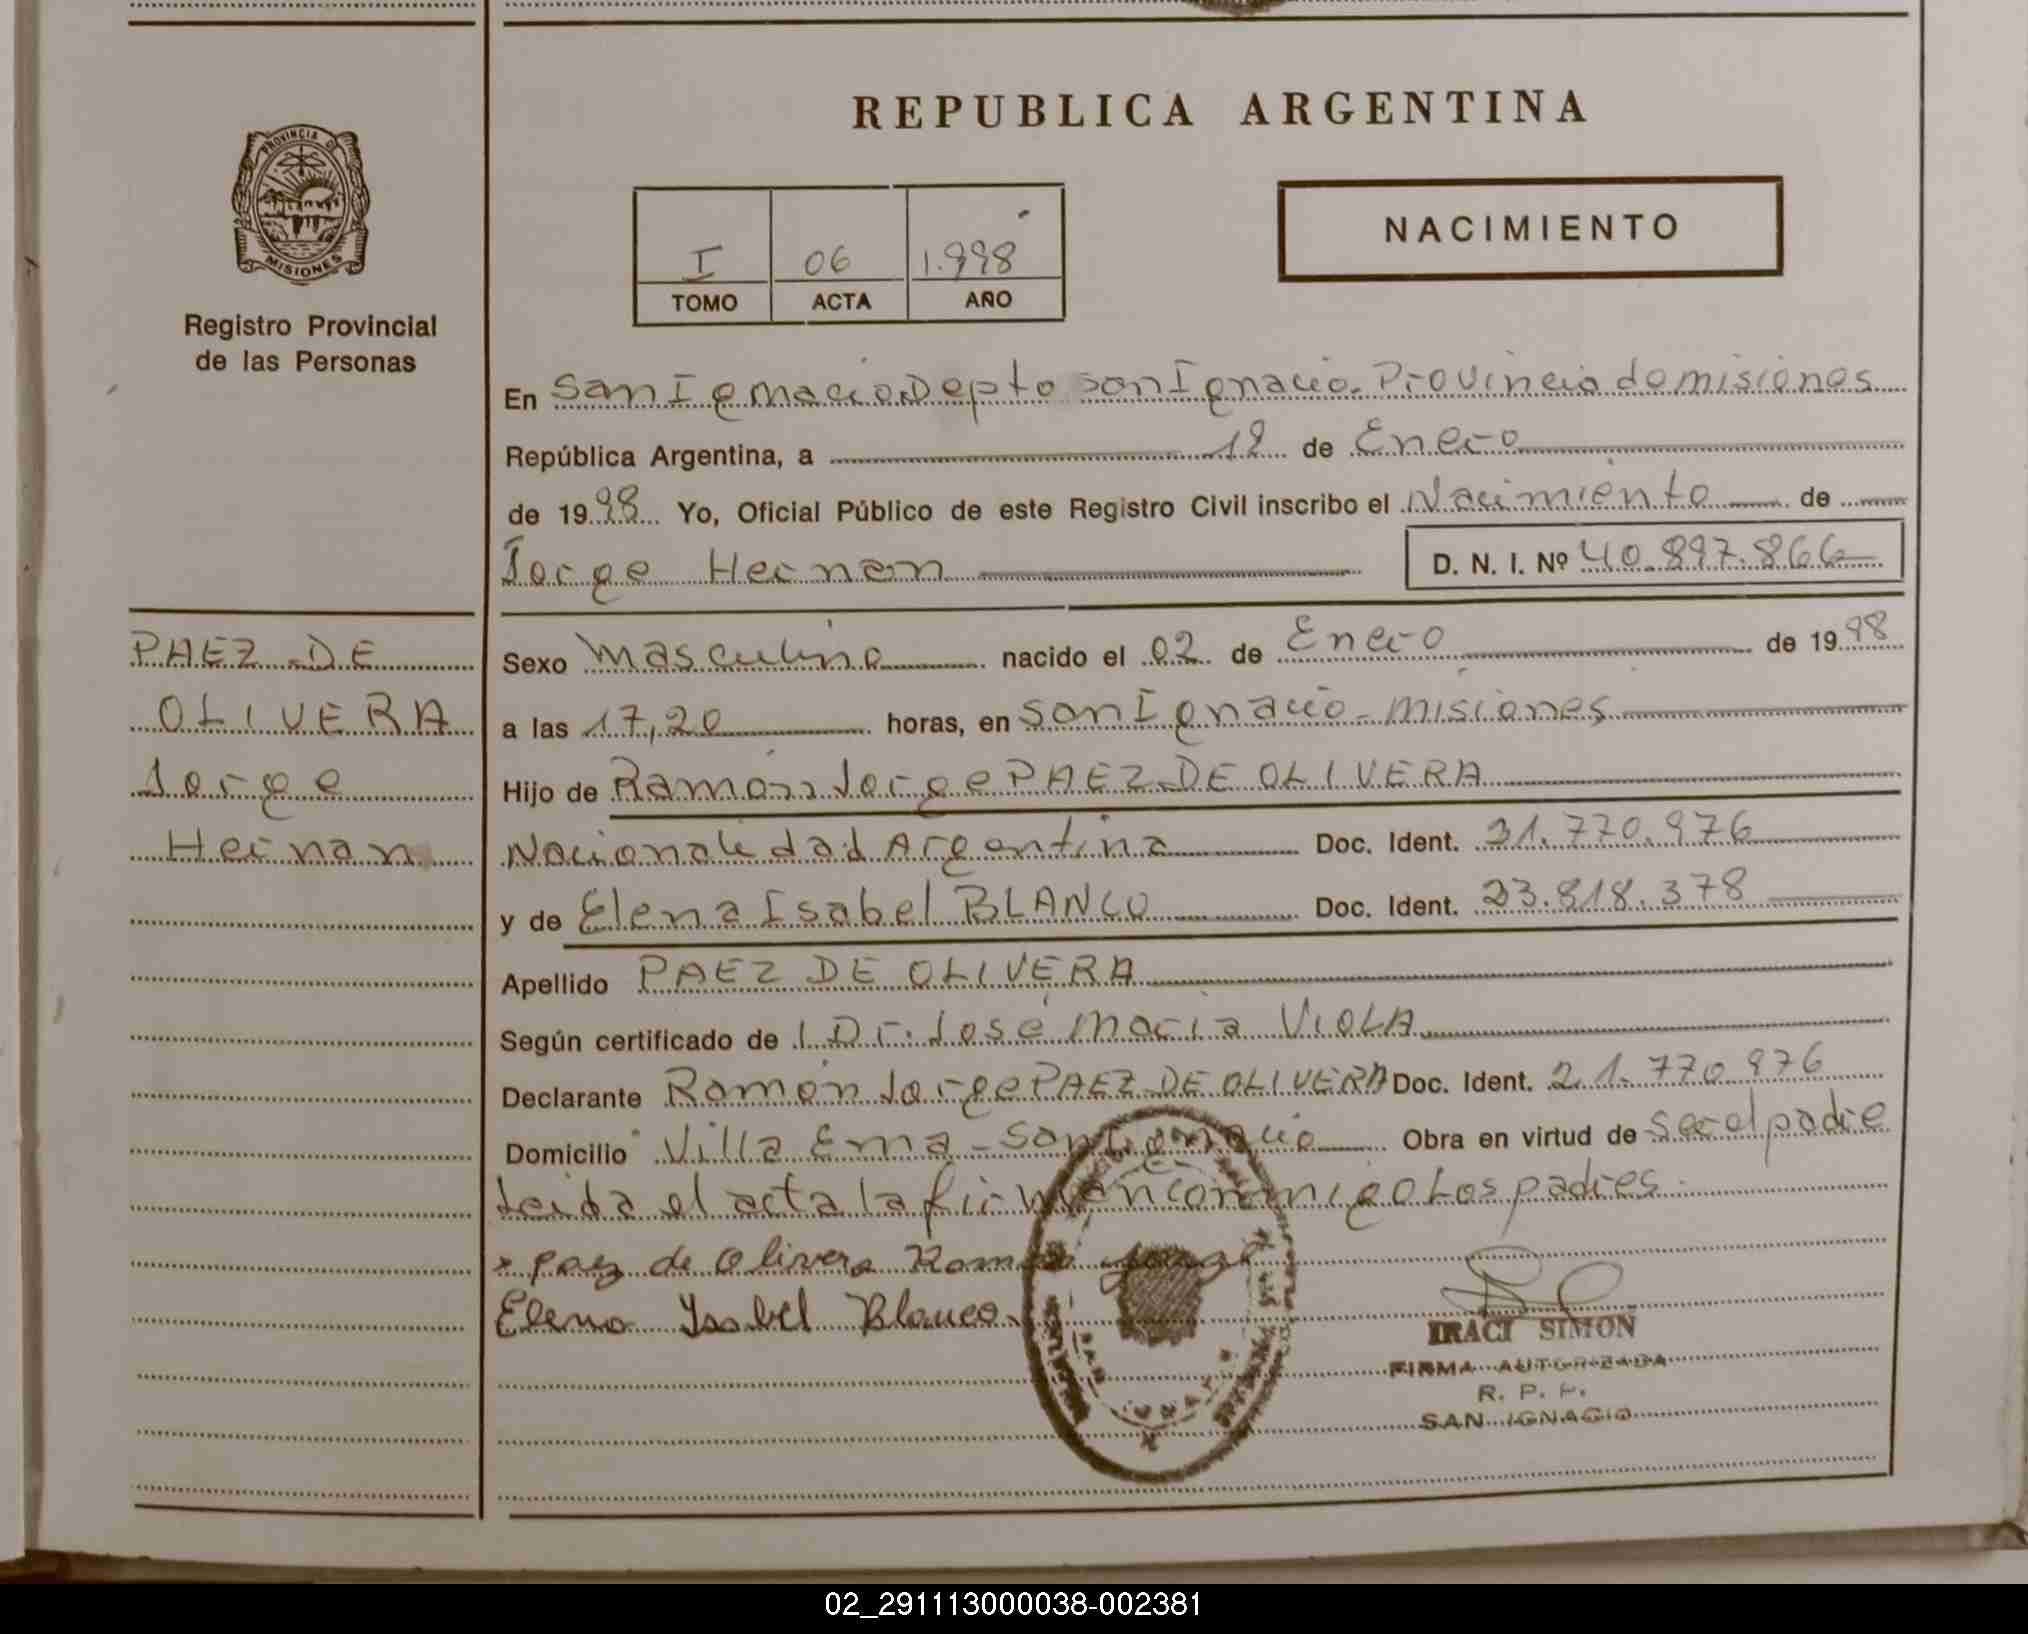 REPUBLICA ARGENTINA
PROVINCIA D
MISIONES
Registro Provincial
de las Personas
I 06 1.998
TOMO ACTA AÑO
NACIMIENTO
En San Ignacio Depto San Ignacio. Provincia de misiones
República Argentina, a 12 de Enero
de 1998 Yo, Oficial Público de este Registro Civil inscribo el Nacimiento de
Jorge Hernan D. N. I. Nº 40.897.866
PAEZ DE
OLIVERA
Jorge
Hernan
Sexo masculino nacido el 02 de Enero de 1998
a las 17,20 horas, en San Ignacio - misiones
Hijo de Ramón Jorge PAEZ DE OLIVERA
Nacionalidad Argentina Doc. Ident. 21.770.976
y de Elena Isabel BLANCO Doc. Ident. 23.818.378
Apellido PAEZ DE OLIVERA
Según certificado de l Dr. José Maria VIOLA
Declarante Ramón Jorge PAEZ DE OLIVERA Doc. Ident. 21.770 976
Domicilio Villa Ema - San Ignacio Obra en virtud de ser el padre
Leida el acta la firman conmigo Los padres.
x Paez de Olivera Ramon Jorge
Elena Ysabel Blanco.
IRACI SIMON
FIRMA AUTORIZADA
R. P. P.
SAN IGNACIO
02_291113000038-002381